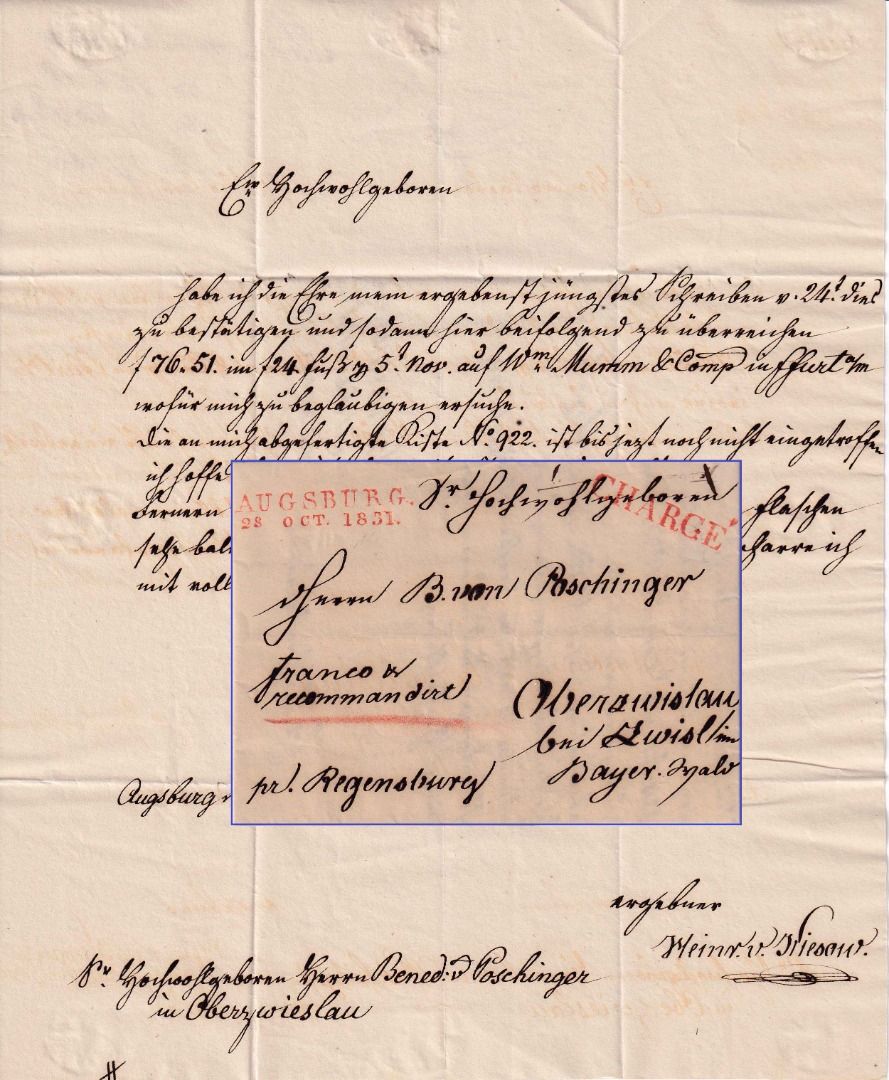 Ew Hochwohlgeboren
habe ich die Ehre mein ergebenst jüngstes Schreiben v. 24t dies
zu bestätigen und sodann hier beifolgend zu überreichen
f 76. 51. im f 24 Fuß p 5t Nov. auf Wm Mumm & Comp in Ffurt a/m
wofür mich zu beglaubigen ersuche.
Die an mich abgefertigte Kiste No. 922. ist bis jezt noch nicht eingetroffen
ich hoffe
Fernern Flaschen
sehe bal harre ich
mit voll
AUGSBURG.
28 OCT. 1831.
CHARGÉ
Sr. Hochwohlgeboren
Herrn B. von Poschinger
franco &
recommandirt
Oberzwislau
bei Zwisl im
Bayer. Wald
pr. Regensburg
Augsburg
ergebner
Heinr. v.
Sr. Hochwohlgeboren Herrn Bened: v Poschinger
in Oberzwieslau